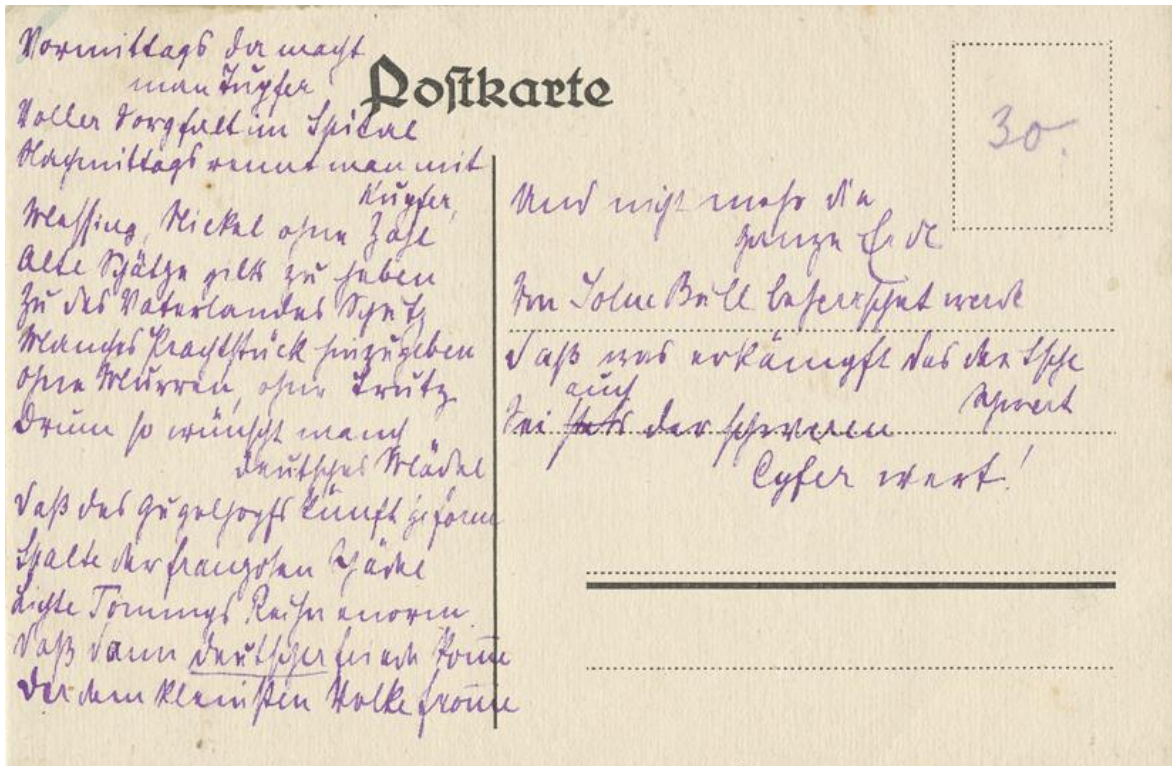 Postkarte
30.
Vormittags da macht
man Tupfer
Voller Sorgfalt im Spital
Nachmittags rennt man mit
Kupfer,
Messing, Nickel ohne Zahl
Alte Schätze gilts zu heben
Zu des Vaterlandes Schutz
Manches Prachtstück hinzugeben
Ohne Murren, ohne Trutz
Drum so wünscht manch
deutsches Mädel
Daß des Gugelhopfs künft'ge Form
Spalte der Franzosen Schädel
Lichte Tommys Reihn enorm.
Daß dann deutscher Friede kom̅e
Der dem kleinsten Volke from̅e
Und nicht mehr die
ganze Erde
Von John Bull beherrschet werde
Daß was erkämpft das deutsche
Schwert
auch
Sei stets der schweren
Opfer wert!